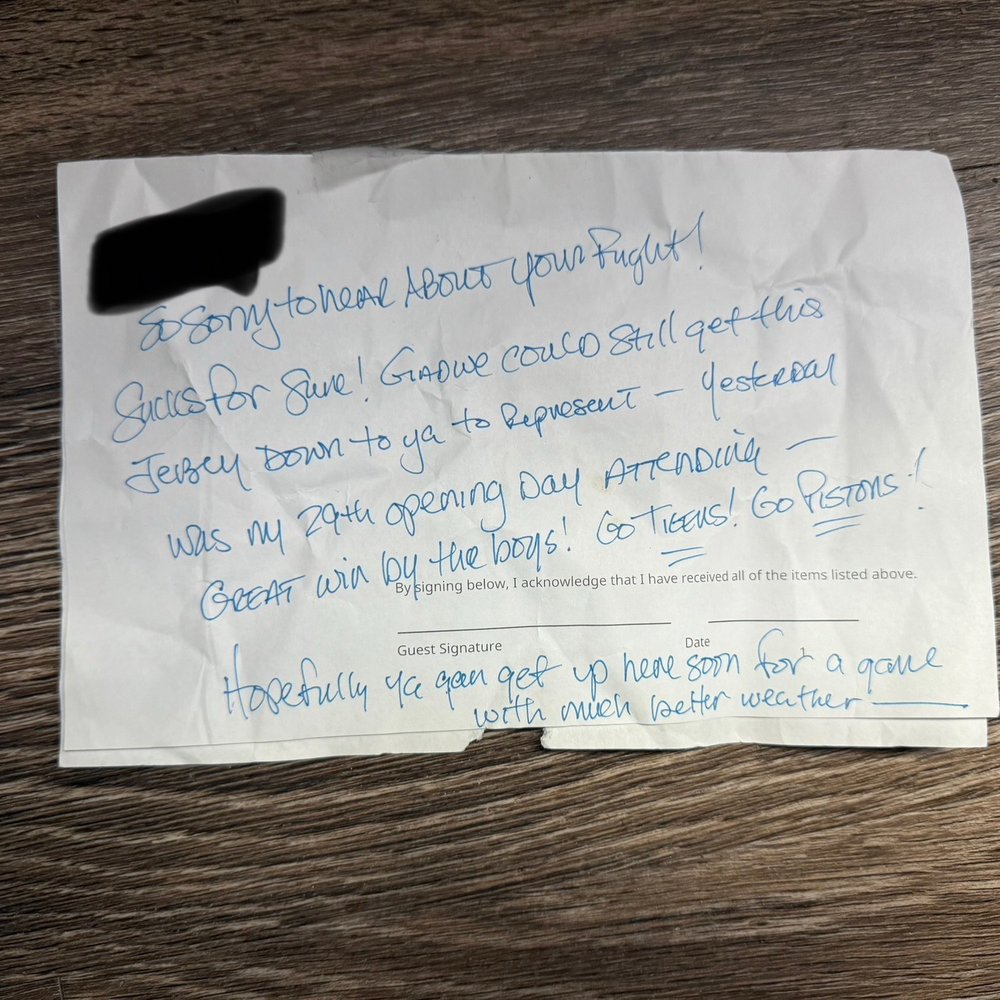 So sorry to hear About your Flight!
Sucks for Sure! Glad we could still get this
Jersey Down to ya to Represent — Yesterday
was my 29th opening Day Attending —
Great win by the boys! Go Tigers! Go Pistons!
By signing below, I acknowledge that I have received all of the items listed above.
Guest Signature Date
Hopefully ya can get up here soon for a game
with much better weather —